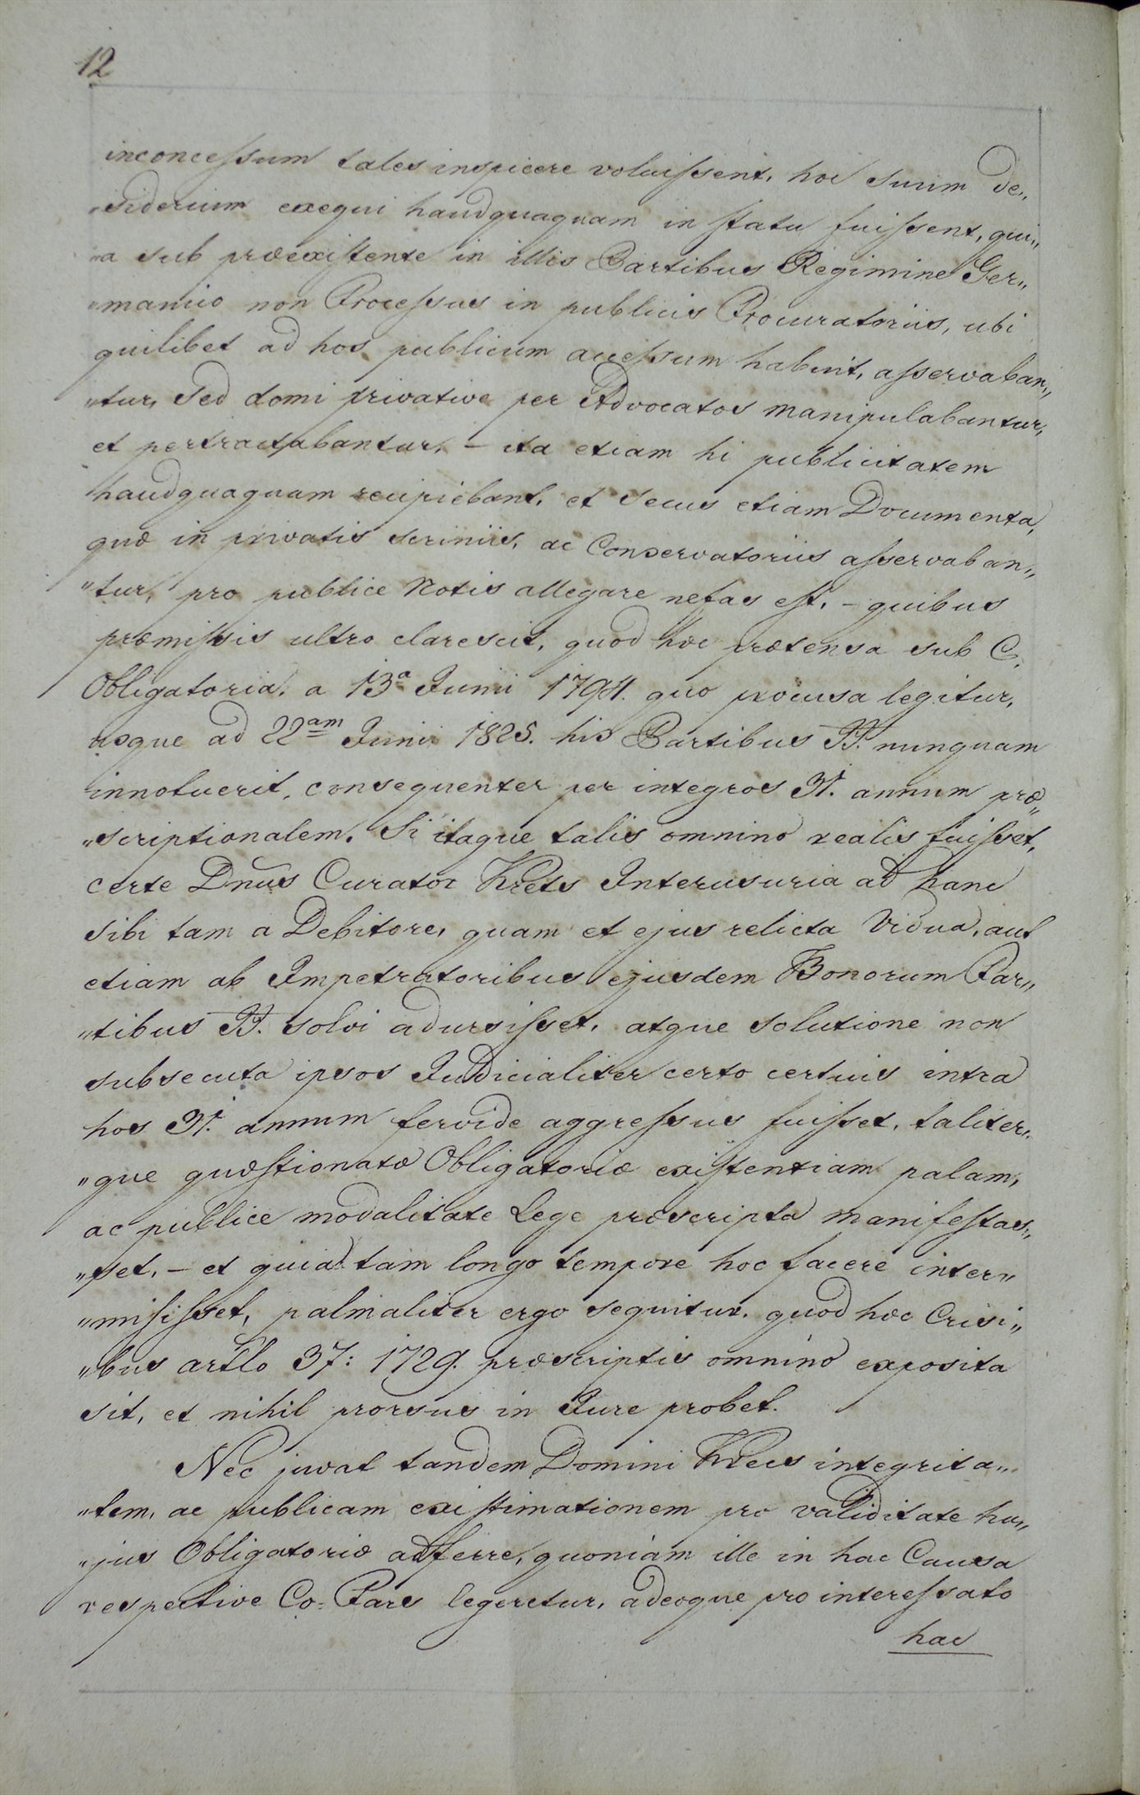 12
inconcessum tales inspicere voluissent, hoc suum de„
„siderium exequi haudquaquam in statu fuissent, qui„
„a sub præexistente in illis Partibus Regimine Ger„
„manico non Processus in publicis Procuratoriis, ubi
quilibet ad hos publicum accessum habuit, asservaban„
„tur, sed domi privative per Advocatos manipulabantur,
et pertractabantur, – ita etiam hi publicitatem
haudquaquam recipiebant, et secus etiam Documenta,
quæ in privatis scriniis, ac Conservatoriis asservaban„
„tur, pro publice Notis allegare nefas est, – quibus
præmissis ultro clarescit, quod hæc prætensa sub C.
Obligatoria, a 13ª Junii 1794. quo procusa legitur,
usque ad 22am Junii 1825. his Partibus II. nunquam
innotuerit, consequenter per integros 31. annum præ„
„scriptionalem. Si itaque talis omnino realis fuisset,
certe Dnus Curator Krets Interusuria ad hanc
sibi tam a Debitore, quam et ejus relicta Vidua, aut
etiam ab Impetratoribus ejusdem Bonorum Par„
„tibus II. solvi adursisset, atque solutione non
subsecuta ipsos Judicialiter certo certius intra
hos 31. annum fervide aggressus fuisset, taliter„
„que quæstionatæ Obligatoriæ existentiam palam,
ac publice modalitate Lege præscripta manifestas„
„set, – et quia tam longo tempore hoc facere inter„
„misisset, palmaliter ergo sequitur, quod hæc Crisi„
„bus artlo 37: 1729. præscriptis omnino exposita
sit, et nihil prorsus in Jure probet.
Nec juvat tandem Domini Krecs integrita„
„tem, ac publicam existimationem pro validitate hu„
„jus Obligatoriæ adferre, quoniam ille in hac Causa
respective Co-Pars legeretur, adeoque pro interessato
hac